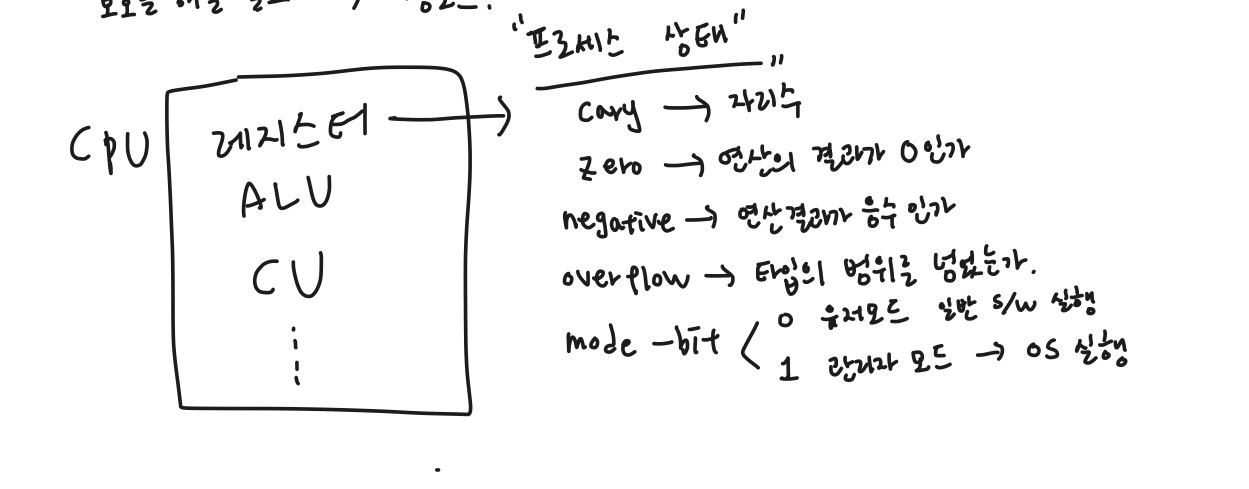 "프로세스 상태"
CPU
레지스터
ALU
CU
cary → 자리수
zero → 연산의 결과가 0인가
negative → 연산결과가 음수인가
overflow → 타입의 범위를 넘었는가.
mode-bit
0 유저모드 일반 s/w 실행
1 관리자 모드 → OS 실행